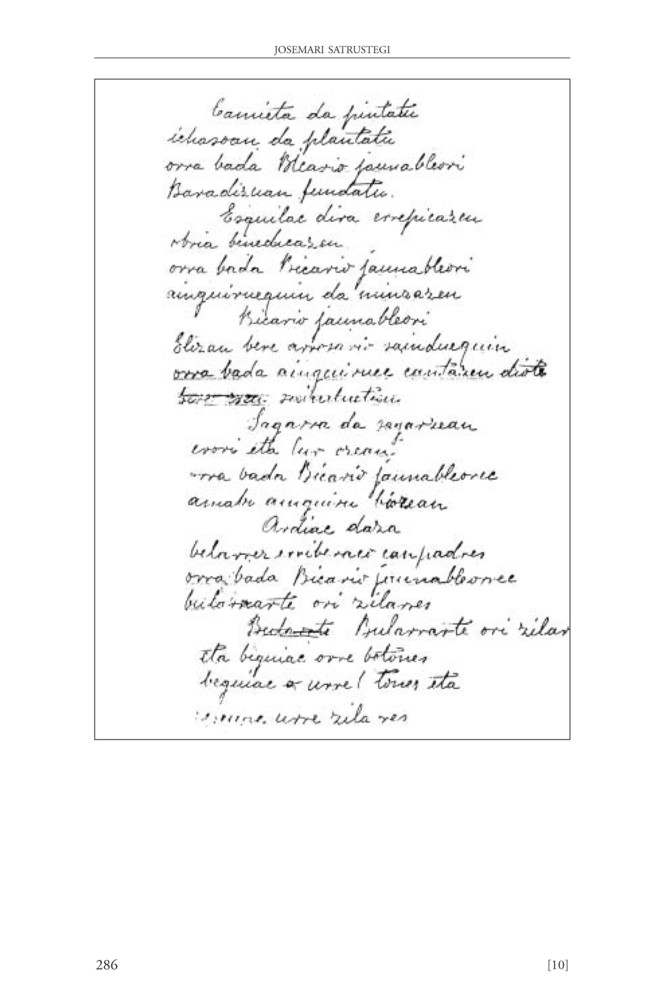 JOSEMARI SATRUSTEGI
Camieta da pintatu
ichasoan da plantatu
orra bada Bicario jaunableori
Baradizuan fundatu.
Esquilac dira errepicazen
obria benedicazen
orra bada Bicario jaunableori
ainguiruequin da minzazen
Bicario jaunableori
Elizan bere arrosario sainduequin
orra bada ainguiruec cantazen diote
Sagarra da sagarzean
erori eta lur ocean!
orra bada Bicario jaunableorec
amabi ainguiru biozean
Ardiac daza
belarrez erriberaco canpadres
orra bada Bicario jaunableonec
ori zilarres
Bularrarte ori zilar
eta beguiac orre botones
beguiac urre tones eta
urre zilarres
286
[10]